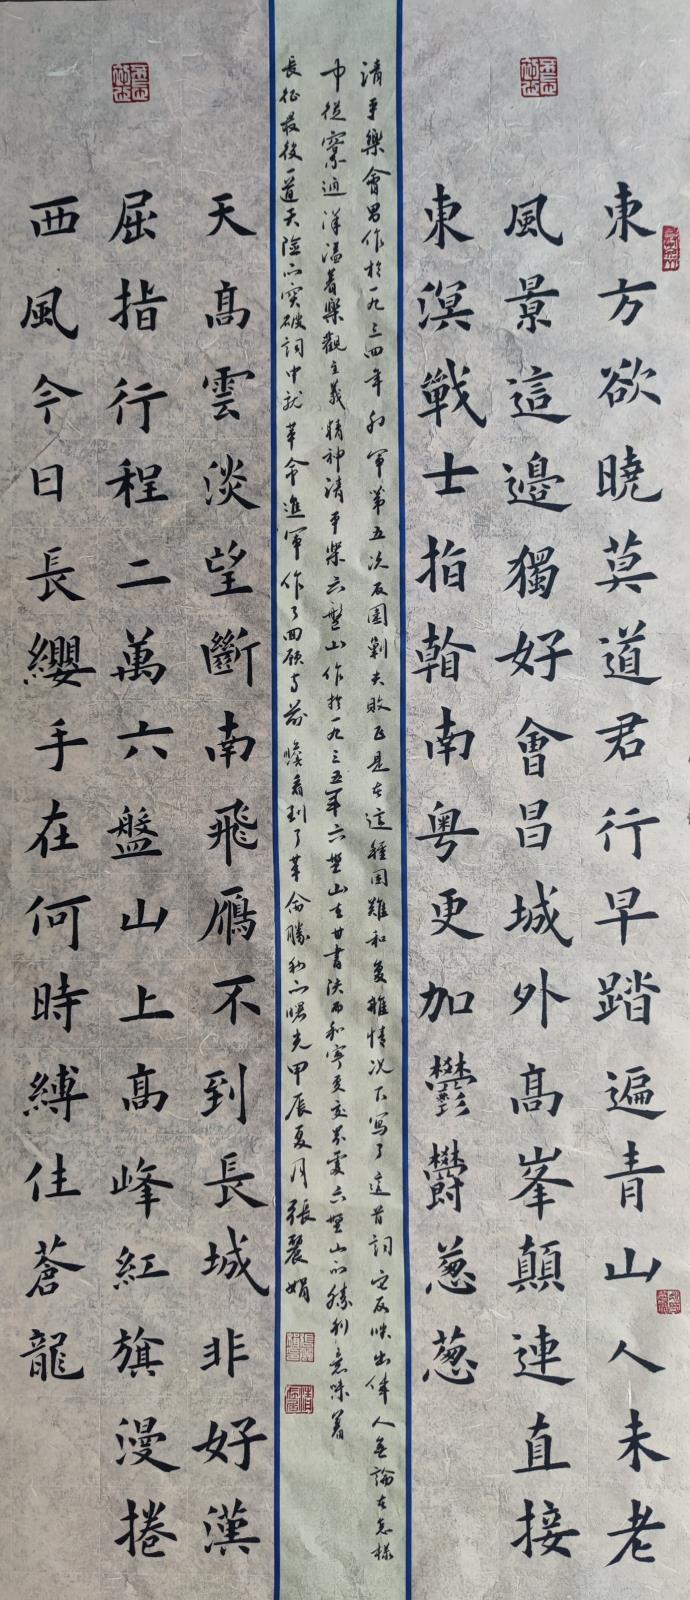 東方欲曉莫道君行早踏遍青山人未老
風景這邊獨好會昌城外高峯顛連直接
東溟戰士指看南粵更加鬱鬱葱葱
清平樂會昌作於一九三四年紅軍第五次反圍剿失敗正是在這種困難和復雜情況下寫了這首詞它反映出偉人無論在怎樣
中從容適洋溢着樂觀主義精神清平樂六盤山作於一九三五年六盤山在甘書陜西和寧夏交界處六盤山的勝利意味着
長征最後一道天險的突破詞中就革命進軍作了回顧與前瞻看到了革命勝利的曙光甲辰夏月張麗娟
天高雲淡望斷南飛雁不到長城非好漢
屈指行程二萬六盤山上高峰紅旗漫捲
西風今日長纓手在何時縛住蒼龍